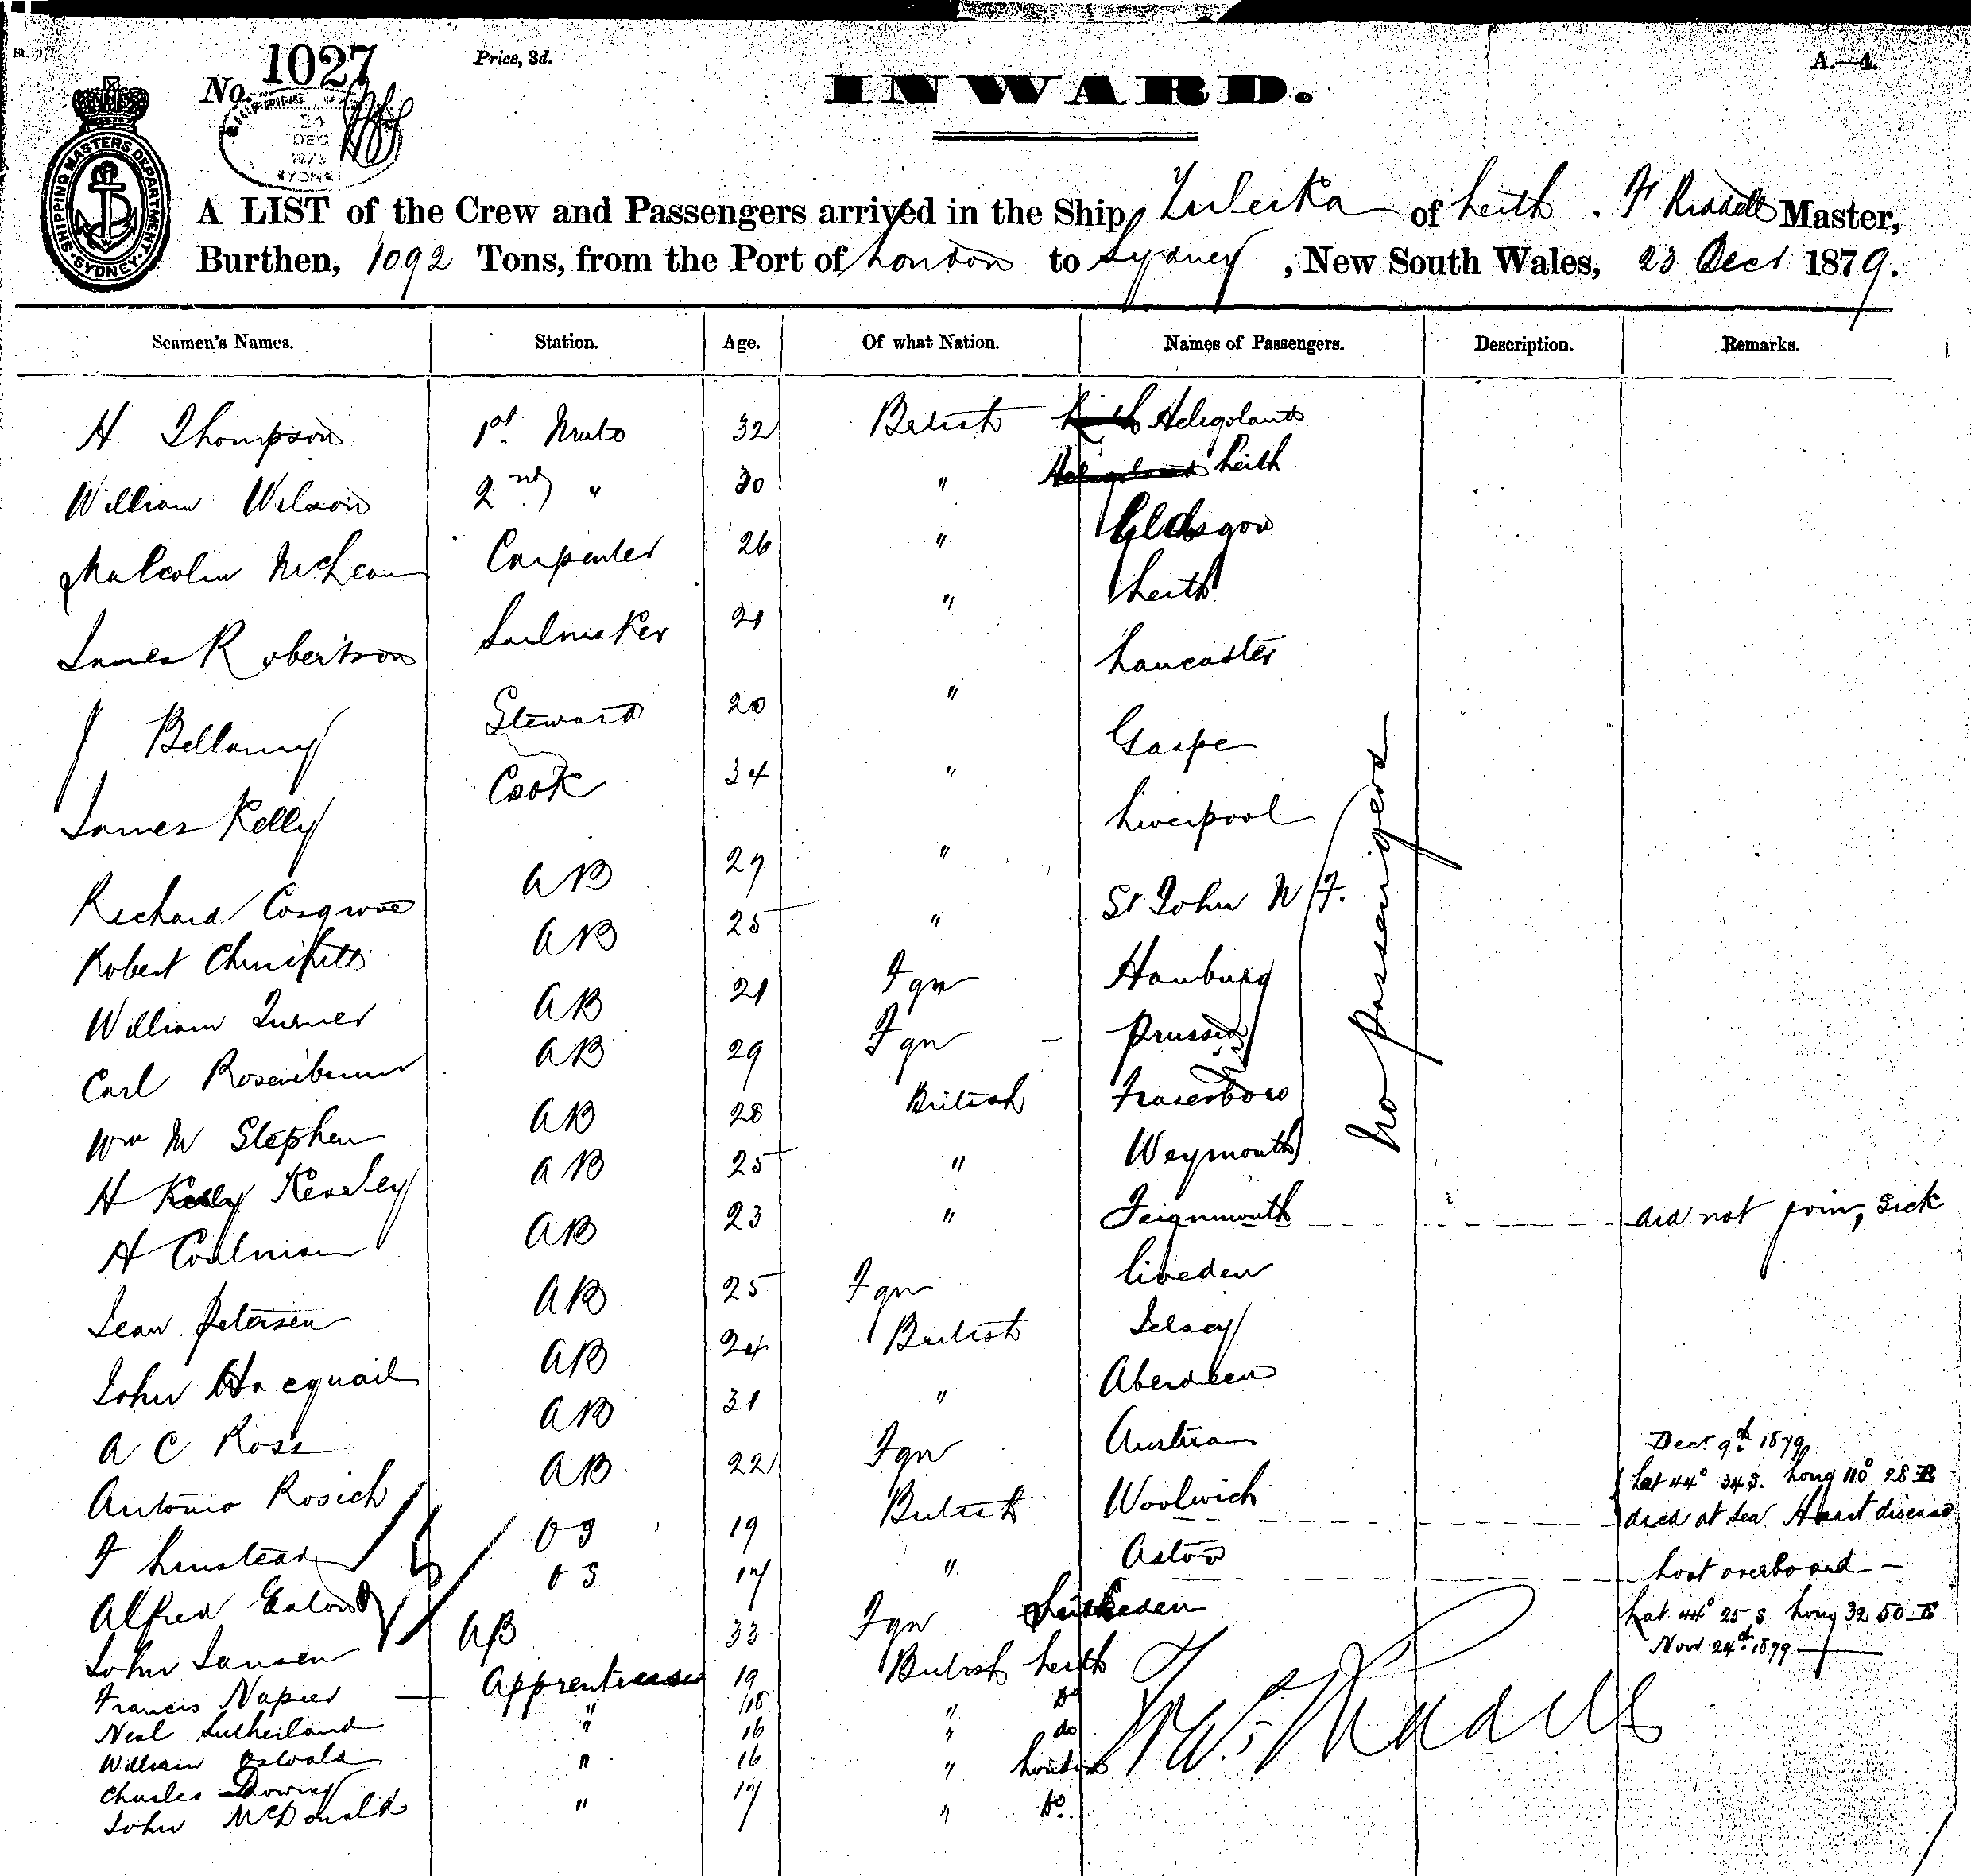 No. 1027
Price, 3d.
A.—4.
INWARD.
SHIPPING MASTERS DEPARTMENT
SYDNEY
DEC
SYDNEY
A LIST of the Crew and Passengers arrived in the Ship, of Leith. Master,
Burthen, 1092 Tons, from the Port of London to Sydney, New South Wales, 23 Decr 1879.
Seamen's Names. Station. Age. Of what Nation. Names of Passengers. Description. Remarks.
H Thompson 1st Mate 32 British Heligoland
William Wilson 2nd " 30 " Leith
Malcolm McLean Carpenter 26 " Glasgow
James Robertson Sailmaker 21 " Leith
J Bellamy Steward 20 " Lancaster
James Kelly Cook 34 " Gaspe
Richard Cosgrove AB 27 " Liverpool
Robert AB 25 " St John N F.
William Turner AB 21 Fgn Hamburg
Carl Rosenbaum AB 29 Fgn Prussia
Wm M Stephen AB 28 British Fraserboro
H Kelly AB 25 " Weymouth
H Coulman AB 23 " Teignmouth did not join, sick
Petersen AB 25 Fgn
John AB 24 British Jersey
A C Ross AB 31 " Aberdeen
Antonio Rosich AB 22 Fgn Austria
Decr 9th 1879
Lat 44° 34 S. Long 110° 28 E
F Linstead OS 19 British Woolwich died at sea Heart disease
Alfred OS 17 " Aston Lost overboard
John Jansen AB 33 Fgn
Lat 44° 25 S Long 32 50 E
Novr 24th 1879
Francis Napier Apprentices 19 British Leith
Neal Sutherland " 18 " Do
William Oswald " 16 " do
Charles " 16 " London
John McDonald " 17 " Do.
No passengers